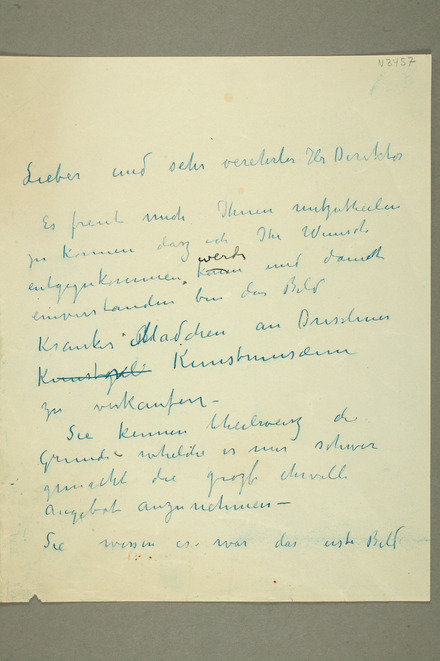 N 3457
Lieber und sehr verehrter Hr Direktor
Es freut mich Ihnen mitzutheilen
zu können dasz ich Ihr Wunsch
entgegenkommen werde und damit
einverstanden bin das Bild
Krankes Mädchen an Dresdener
Kunstmuseum
zu verkaufen –
Sie kennen theilweisz die
Grunde welche es mir schwer
gemacht die groszt
Angebot anzunehmen –
Sie wissen es war das erste Bild